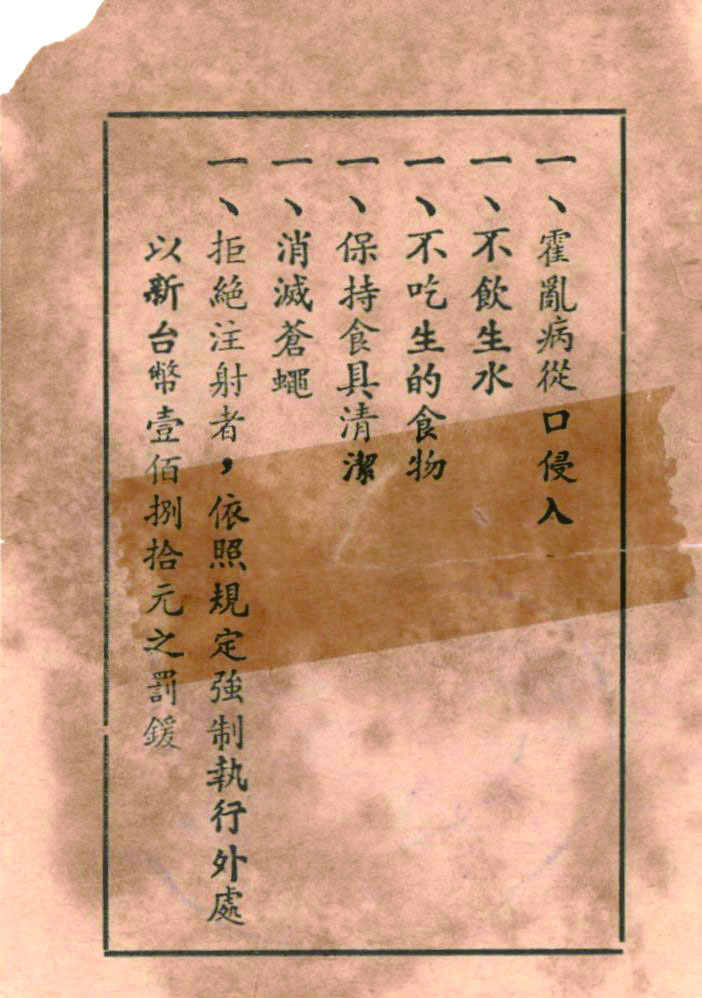 一、霍亂病從口侵入
一、不飲生水
一、不吃生的食物
一、保持食具清潔
一、消滅蒼蠅
一、拒絕注射者，依照規定強制執行外處
以新台幣壹佰捌拾元之罰鍰